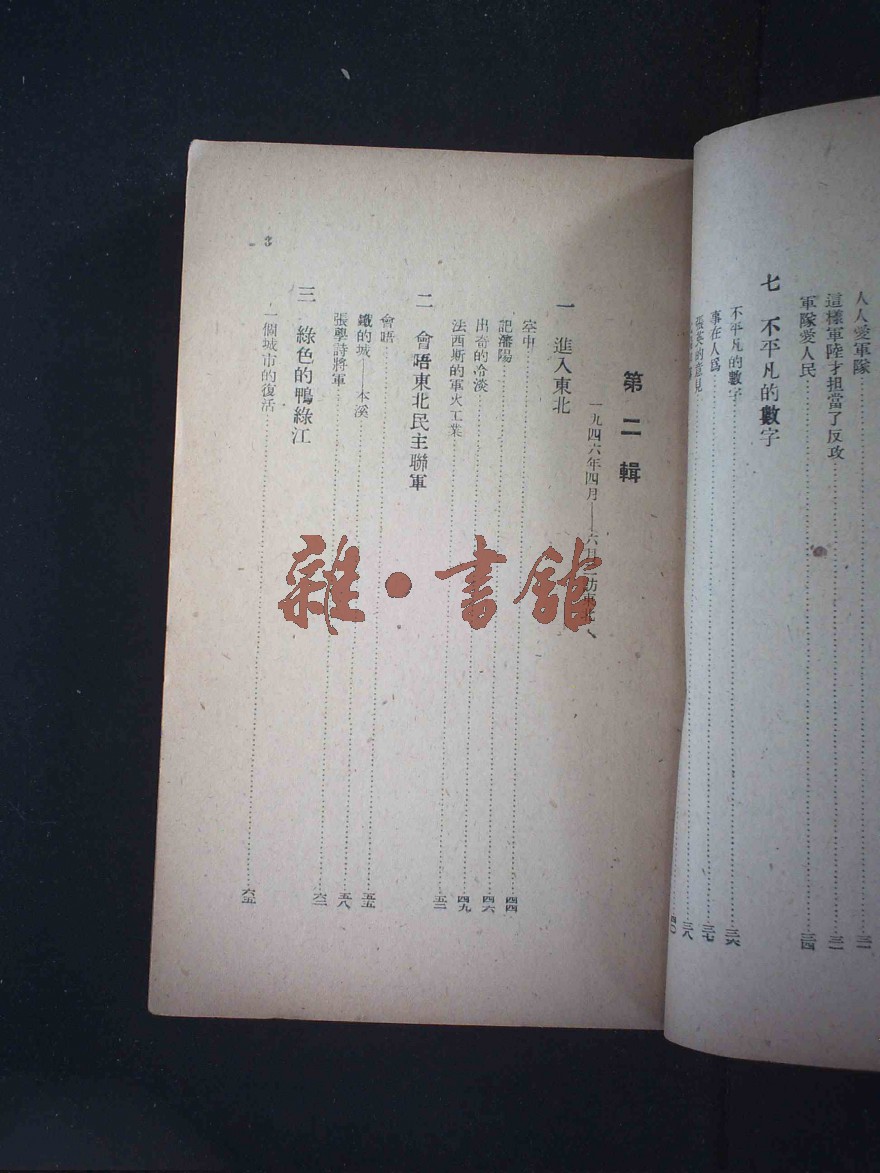 人人愛軍隊 三一
這樣軍陸才担當了反攻 三二
軍隊愛人民 三四
七 不平凡的數字
不平凡的數字 三六
事在人爲 三七
張英的意見 三八
四〇
第二輯
一九四六年四月——六月
一 進入東北
空中 四四
記瀋陽 四六
出奇的冷淡 四九
法西斯的軍火工業 五二
二 會晤東北民主聯軍
會晤 五五
鐵的城——本溪 五八
張學詩將軍 六二
三 綠色的鴨綠江
一個城市的復活 六五
3
雜·書館